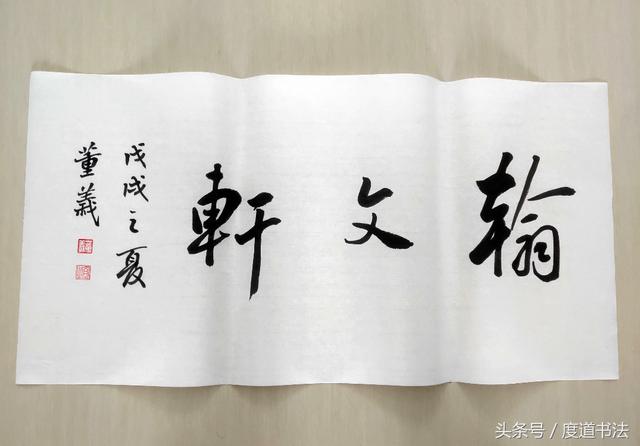 翰文軒
戊戌之夏
董義
头条号 / 度道书法